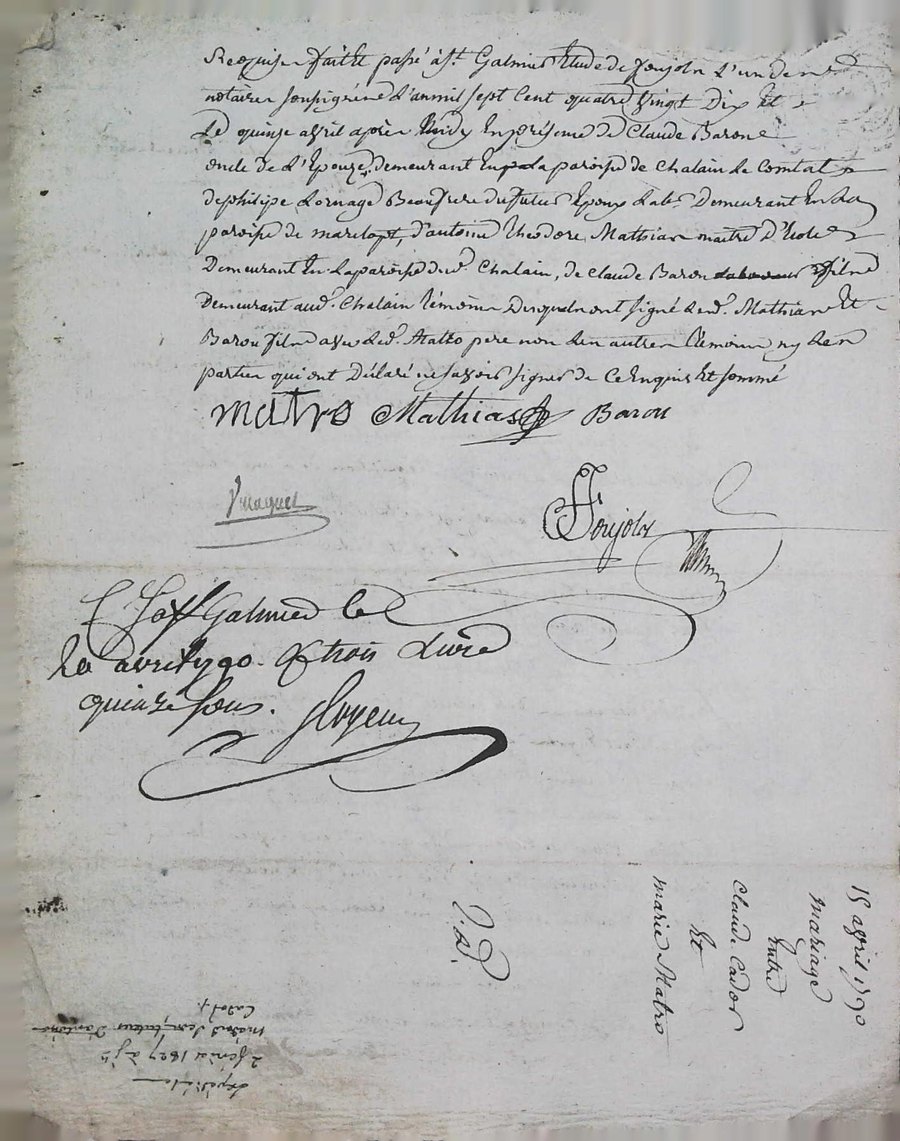 Requis fait et passé à St. Galmier Etude de Poujola l'un des
notaires soussignés l'an mil sept cent quatre vingt Dix Et
Le quinze avril après Midy En présence de Claude Baron
oncle de L'Epouze, demeurant En la paroisse de Chalain Le Comtal
de philipe Lornage Beaufrere du futur Epoux Labr. Demeurant En La
paroisse de marclopt, d'antoine Theodore Mathias maitre d'Ecole
Demeurant En La paroisse dud. Chalain, de Claude Baron fils
Demeurant aud. Chalain témoins Desquels ont signé led. Mathias Et
Baron fils avec led. Matro pere non Les autres témoins ny Les
parties qui ont Déclaré ne savoir signer de ce Enquis Et sommé
matro Mathias Baron
Poujola
C. à St Galmier le
avril 90. trois Livre
quinze sous.
15 avril 1790
Mariage
Entre
Claude Cador
Et
marie Matro
expédié le
2 1827 à